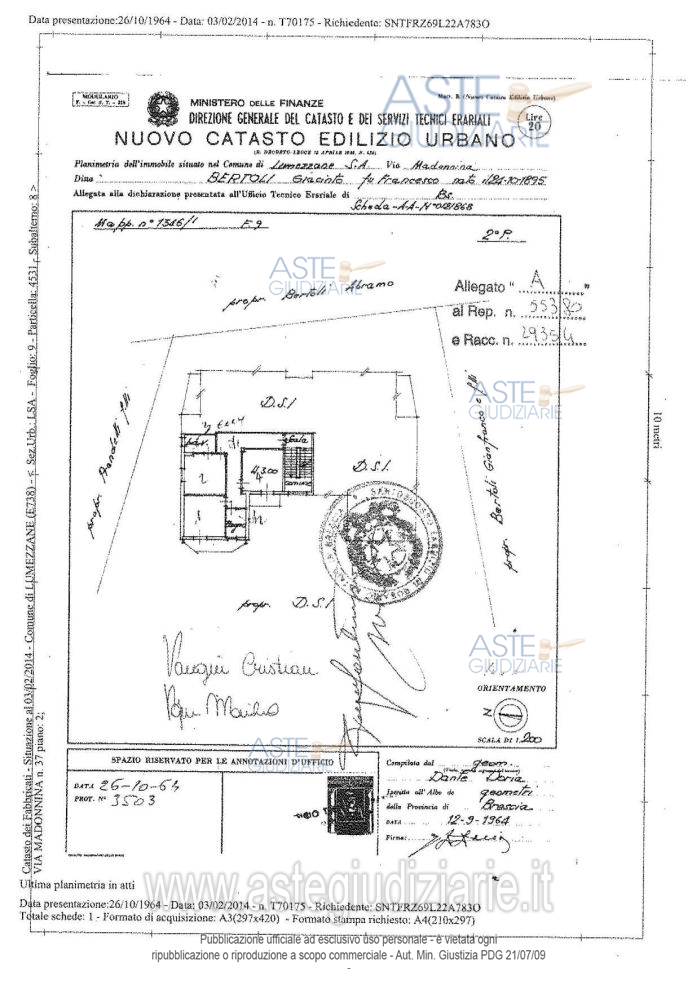 Data presentazione:26/10/1964 - Data: 03/02/2014 - n. T70175 - Richiedente: SNTFRZ69L22A783O
MODULARIO
F. - Cat. S. T. - 315
MINISTERO DELLE FINANZE
DIREZIONE GENERALE DEL CATASTO E DEI SERVIZI TECNICI ERARIALI
NUOVO CATASTO EDILIZIO URBANO
Mod. B (Nuovo Catasto Edilizio Urbano)
Lire
20
Planimetria dell'immobile situato nel Comune di Lumezzane S.A. Via Madonnina
Ditta BERTOLI Giacinto fu Francesco nato il 24-10-1895
Allegata alla dichiarazione presentata all'Ufficio Tecnico Erariale di Bs.
Scheda-AA-N°0181868
Mapp. n° 1346/1 F. 9
2° P.
ASTE
GIUDIZIARIE
propr. Bertoli Abramo
Allegato " A "
al Rep. n. 55380
e Racc. n. 29354
propr. Bertoli Gianfranco e flli
D.S.I
D.S.I
scala
2
1
4
H 3.00
bagno
propr. D.S.I
Cristian
ORIENTAMENTO
N
SCALA DI 1: 200
10 metri
SPAZIO RISERVATO PER LE ANNOTAZIONI D'UFFICIO
DATA 26-10-64
PROT. N° 3503
Compilata dal geom.
Dante Doria
Iscritto all'Albo de geometri
della Provincia di Brescia
DATA 12-9-1964
Firma:
Catasto dei Fabbricati - Situazione al 03/02/2014 - Comune di LUMEZZANE (E738) - < Sez.Urb.: LSA - Foglio: 9 - Particella: 4531 - Subalterno: 8 >
VIA MADONNINA n. 37 piano: 2;
Ultima planimetria in atti
www.astegiudiziarie.it
Data presentazione:26/10/1964 - Data: 03/02/2014 - n. T70175 - Richiedente: SNTFRZ69L22A783O
Totale schede: 1 - Formato di acquisizione: A3(297x420) - Formato stampa richiesto: A4(210x297)
Pubblicazione ufficiale ad esclusivo uso personale - è vietata ogni
ripubblicazione o riproduzione a scopo commerciale - Aut. Min. Giustizia PDG 21/07/09